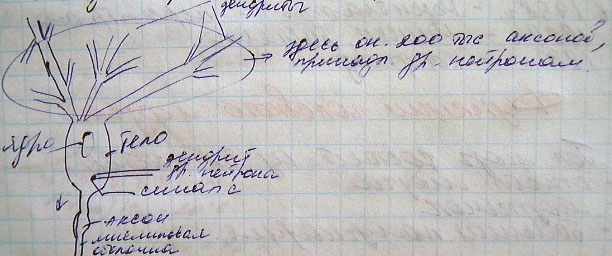 дендриты
здесь ок. 200 тыс аксонов,
принадл. др. нейронам
ядро
тело
дендрит
др. нейрона
синапс
аксон
миелиновая
оболочка